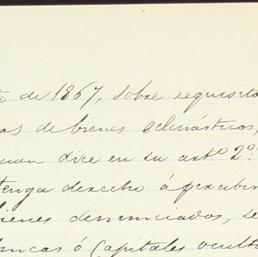 de 1867, sobre requisito
as de bienes eclesiásticos,
cion dice en su artº 2º
tenga derecho á percibir
bienes denunciados, se
fincas ó Capitales ocult